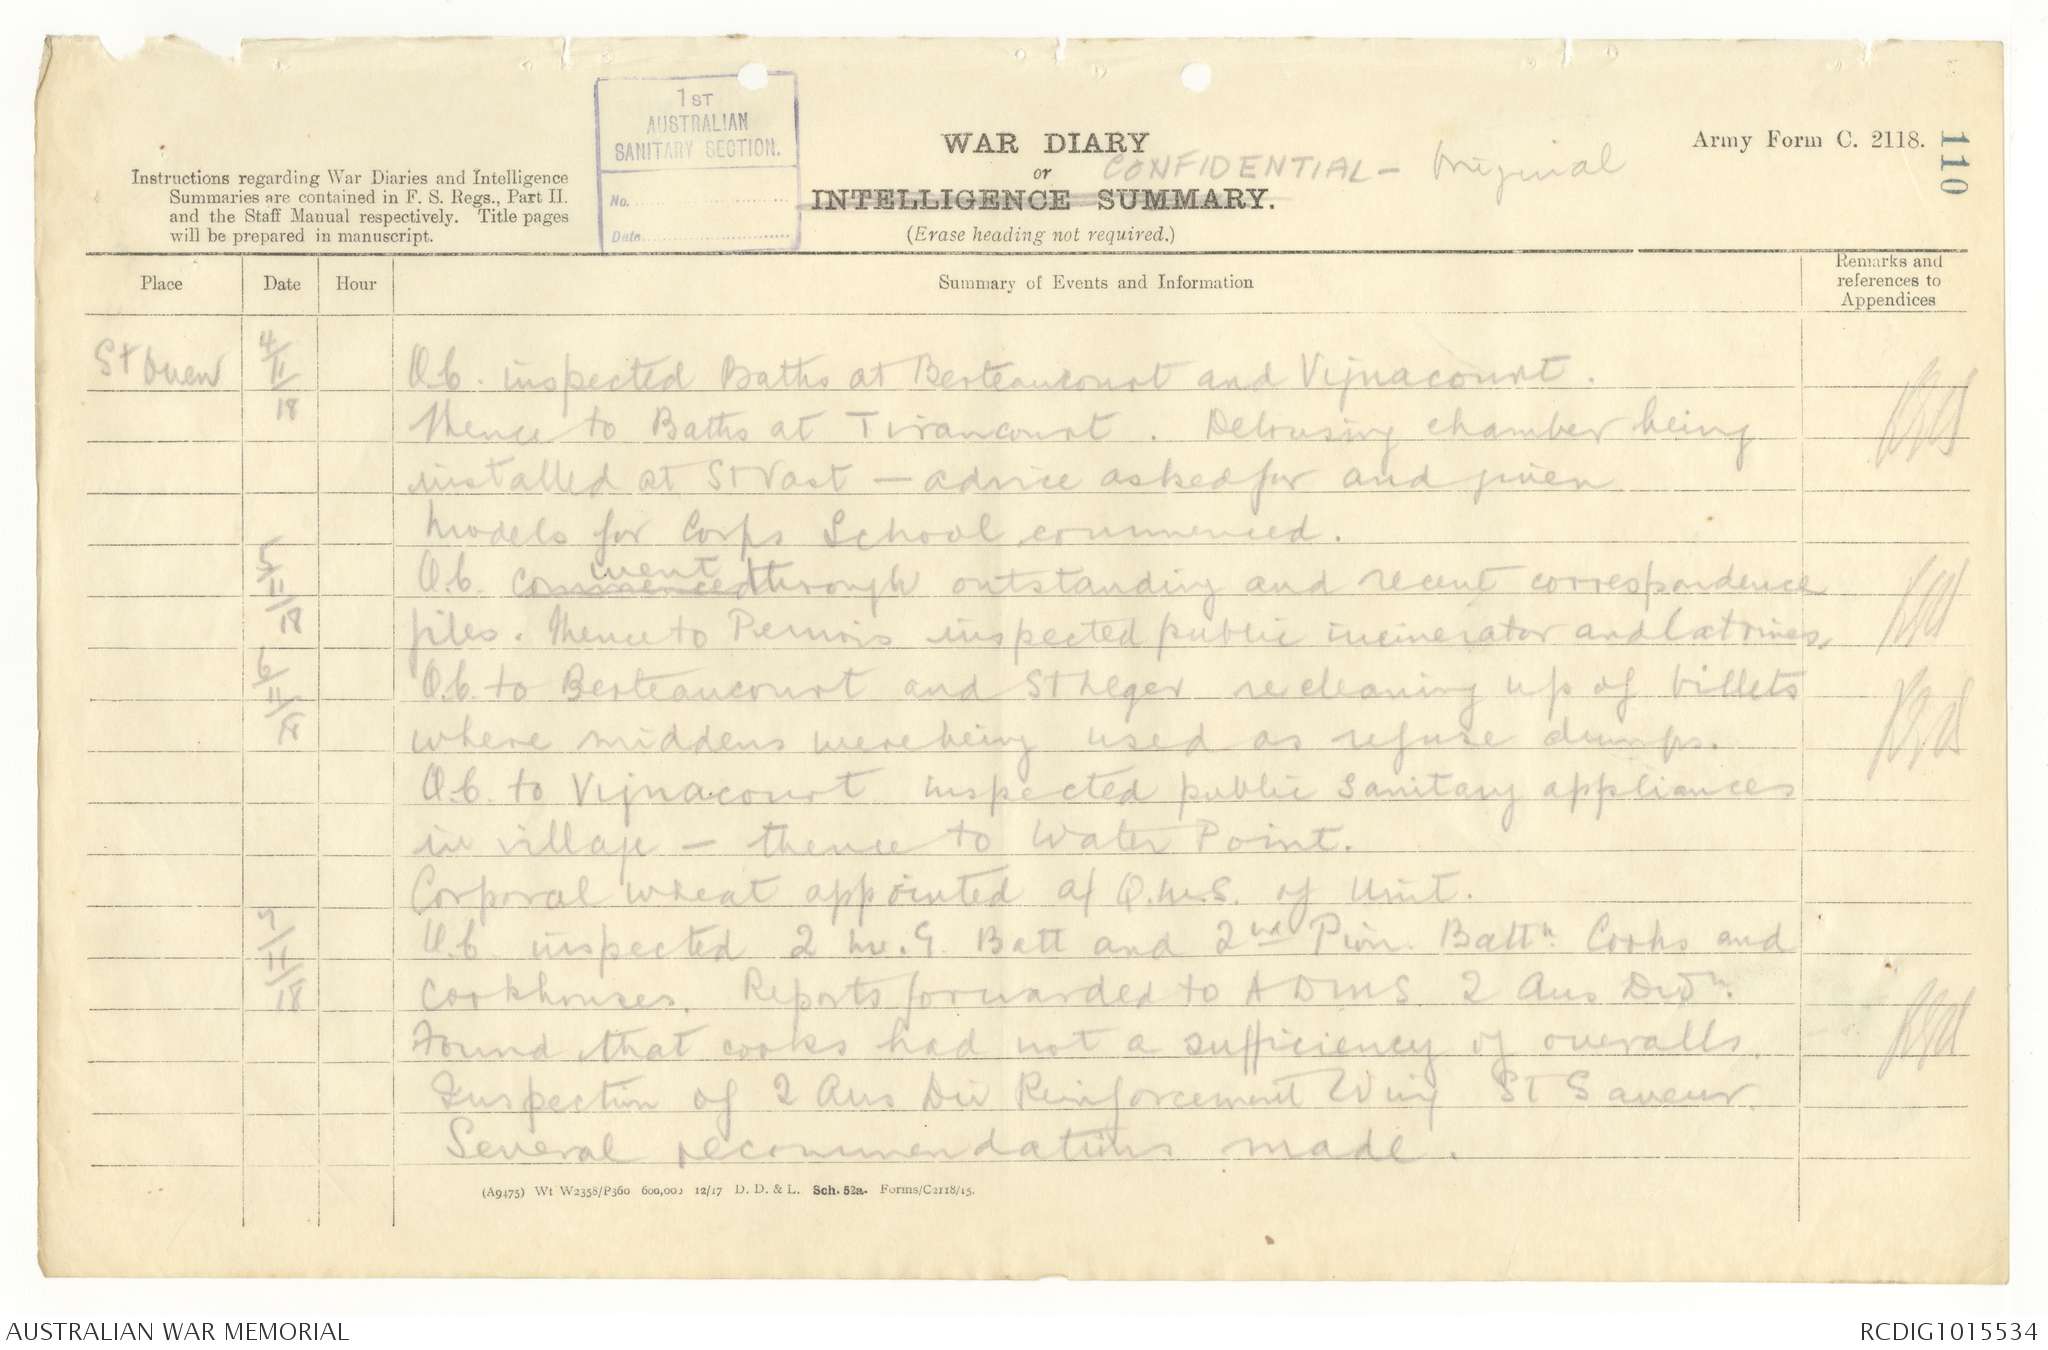 1ST
AUSTRALIAN
SANITARY SECTION.
No.
Date
WAR DIARY
or
CONFIDENTIAL - Original
INTELLIGENCE SUMMARY.
(Erase heading not required.)
Army Form C. 2118.
110
Instructions regarding War Diaries and Intelligence
Summaries are contained in F. S. Regs., Part II.
and the Staff Manual respectively. Title pages
will be prepared in manuscript.
Place Date Hour Summary of Events and Information Remarks and references to Appendices
St Ouen 4/11/18 O.C. inspected Baths at Berteaucourt and Vignacourt.
Thence to Baths at Tirancourt. Delousing chamber being
installed at St Vast — advice asked for and given
Models for Corps School commenced.
5/11/18 O.C. commenced went through outstanding and recent correspondence
files. Thence to Pernois inspected public incinerator and latrines.
6/11/18 O.C. to Berteaucourt and St Leger re cleaning up of billets
where middens were being used as refuse dumps.
O.C. to Vignacourt inspected public sanitary appliances
in village — thence to Water Point.
Corporal Wheat appointed a/ Q.M.S. of Unit.
7/11/18 O.C. inspected 2 M.G. Batt and 2nd Pion. Battn. Cooks and
cookhouses. Reports forwarded to ADMS 2 Aus Divn.
Found that cooks had not a sufficiency of overalls.
Inspection of 2 Aus Div Reinforcement Wing St Saveur.
Several recommendations made.
(A9475) Wt W2358/P360 600,000 12/17 D. D. & L. Sch. 52a. Forms/C2118/15.
AUSTRALIAN WAR MEMORIAL
RCDIG1015534